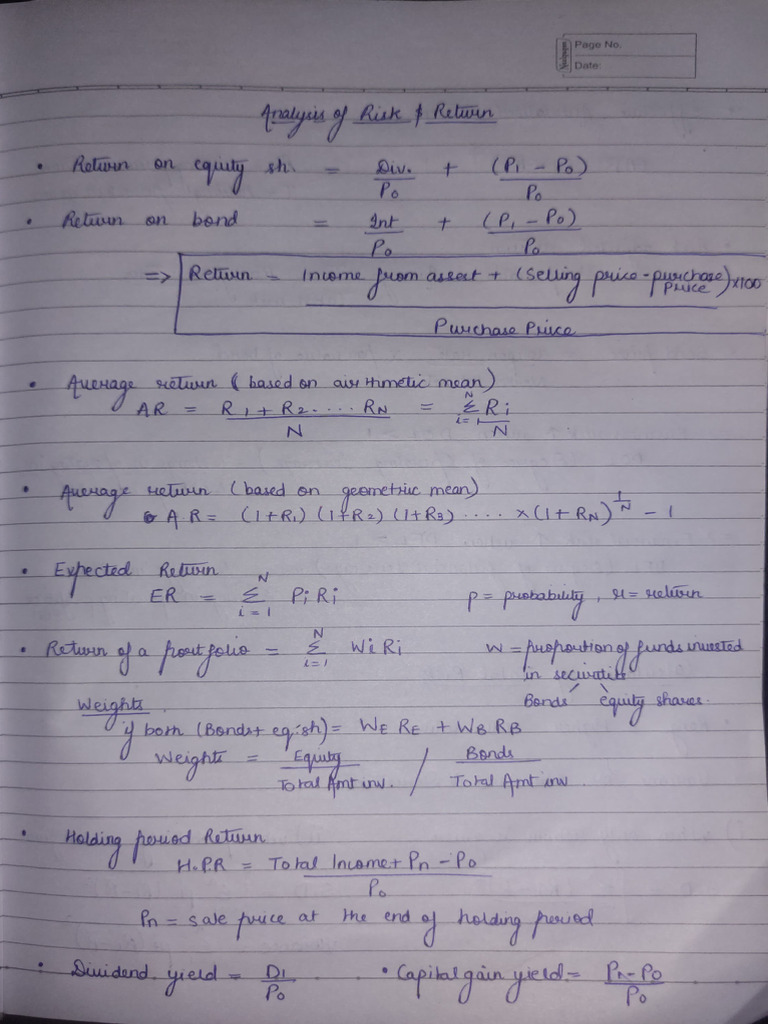 Page No.
Date:
Analysis of Risk & Return
• Return on equity sh. = Div./P0 + (P1 - P0)/P0
• Return on bond = Int/P0 + (P1 - P0)/P0
=> Return = Income from assect + (Selling price - purchase price) x100 / Purchase Price
• Average return (based on airthmetic mean)
AR = R1 + R2. ... RN / N = N Σ i=1 Ri / N
• Average return (based on geometric mean)
A R = (1+R1) (1+R2) (1+R3) .... x (1+ RN)^1/N - 1
• Expected Return
ER = N Σ i=1 Pi Ri p = probability, r = return
• Return of a portfolio = N Σ i=1 Wi Ri W = proportion of funds invested
in securities
Weights Bonds equity shares.
if both (Bonds + eq. sh) = WE RE + WB RB
Weights = Equity / Total Amt inv. / Bonds / Total Amt inv
• Holding period Return
H.P.R = Total Income + Pn - P0 / P0
Pn = sale price at the end of holding period
• Dividend yield = D1/P0 • Capital gain yield = Pn - P0 / P0